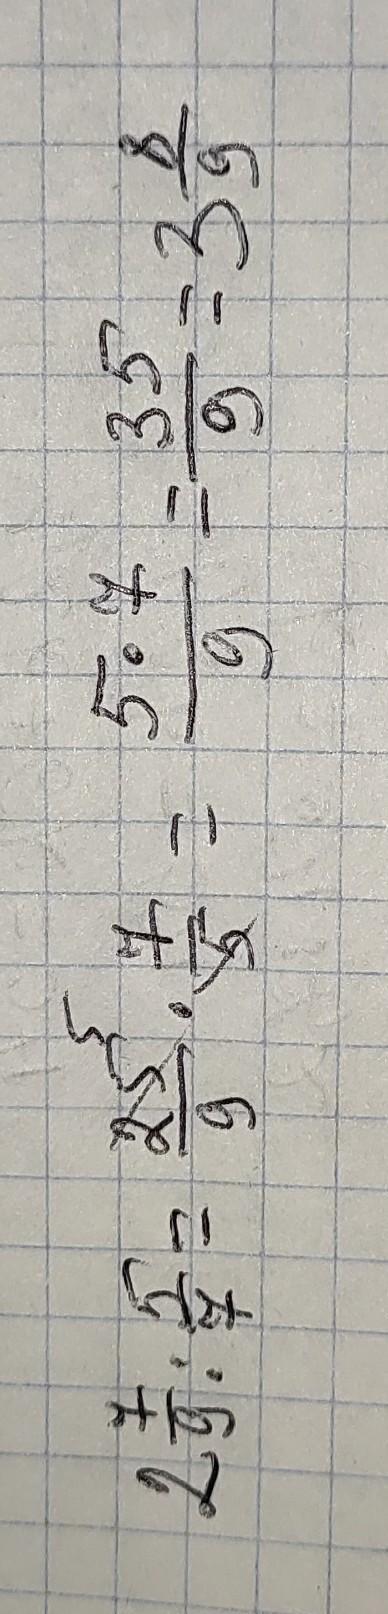 2 7/9 : 5/7 = 25/9 · 7/5 = 5·7/9 = 35/9 = 3 8/9